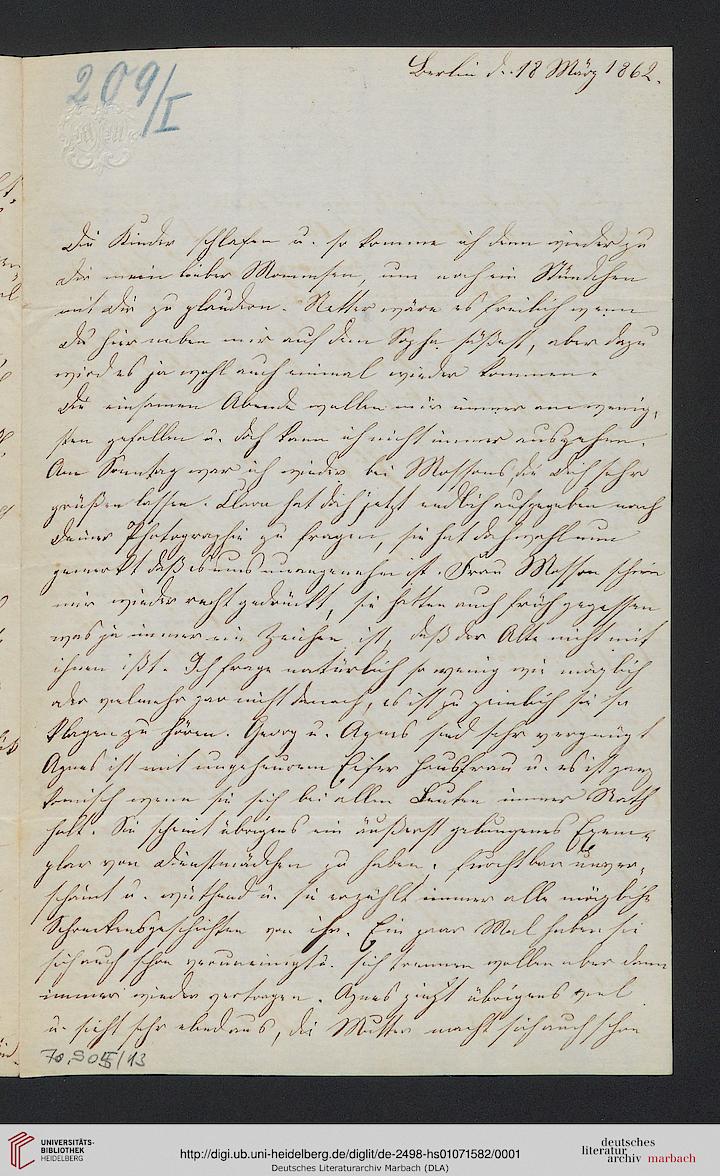 209/I
Berlin d. 18 März 1862.
Die Kinder schlafen u. so komme ich denn wieder zu
Dir mein lieber Mommsen, um noch ein Stündchen
mit Dir zu plaudern. Netter wäre es freilich wenn
Du hier neben mir auf dem Sopha säßest, aber dazu
wird es ja wohl auch einmal wieder kommen.
Die einsamen Abende wollen mir immer am wenig-
sten gefallen u. doch kann ich nicht immer ausgehen.
Am Sonntag war ich wieder bei Mossons, die Dich sehr
grüßen lassen. Clara hat doch jetzt endlich aufgegeben nach
Deiner Photographie zu fragen, sie hat doch wohl nun
gemerkt daß es uns unangenehm ist. Frau Mosson schien
mir wieder recht gedrückt, sie hatten auch früh gegessen
was ja immer ein Zeichen ist, daß der Alte nicht mit
ihnen ißt. Ich frage natürlich so wenig wie möglich
oder vielmehr gar nicht danach, es ist zu peinlich sie so
klagen zu hören. Georg u. Agnes sind sehr vergnügt
Agnes ist mit ungeheurem Eifer Hausfrau u. es ist ganz
komisch wenn sie sich bei allen Leuten immer Rath
holt. Sie scheint übrigens ein äußerst gelungenes Exem-
plar von Dienstmädchen zu haben, furchtbar unver-
schämt u. wüthend u. sie erzählt immer alle mögliche
Schreckensgeschichten von ihr. Ein paar Mal haben sie
sich auch schon veruneinigt u. sich trennen wollen aber dann
immer wieder vertragen. Agnes übrigens viel
u. sieht sehr elend aus, die Mutter macht sich auch schon
70.5045/13
UNIVERSITÄTS-
BIBLIOTHEK
HEIDELBERG
http://digi.ub.uni-heidelberg.de/diglit/de-2498-hs01071582/0001
Deutsches Literaturarchiv Marbach (DLA)
deutsches
literatur
archiv marbach